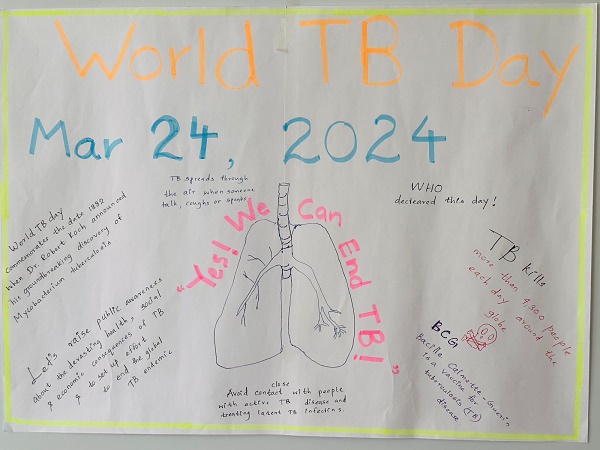 World TB Day
Mar 24, 2024
TB spreads through
the air when someone
talk, coughs or speaks
WHO
decleared this day!
World TB day
commemorates the date 1882
when Dr. Robert Koch announced
his groundbreaking discovery of
Mycobacterium tuberculosis
"Yes! We Can End TB!"
TB kills
more than 4,300 people
each day around the
globe
Let's raise public awareness
about the devasting health, social
& economic consequences of TB
& to set up effort
to end the global
TB endemic
BCG
Bacille Calmette-Guerin
is a vaccine for
tuberculosis (TB)
disease
close
Avoid contact with people
with active TB disease and
treating latent TB infections.